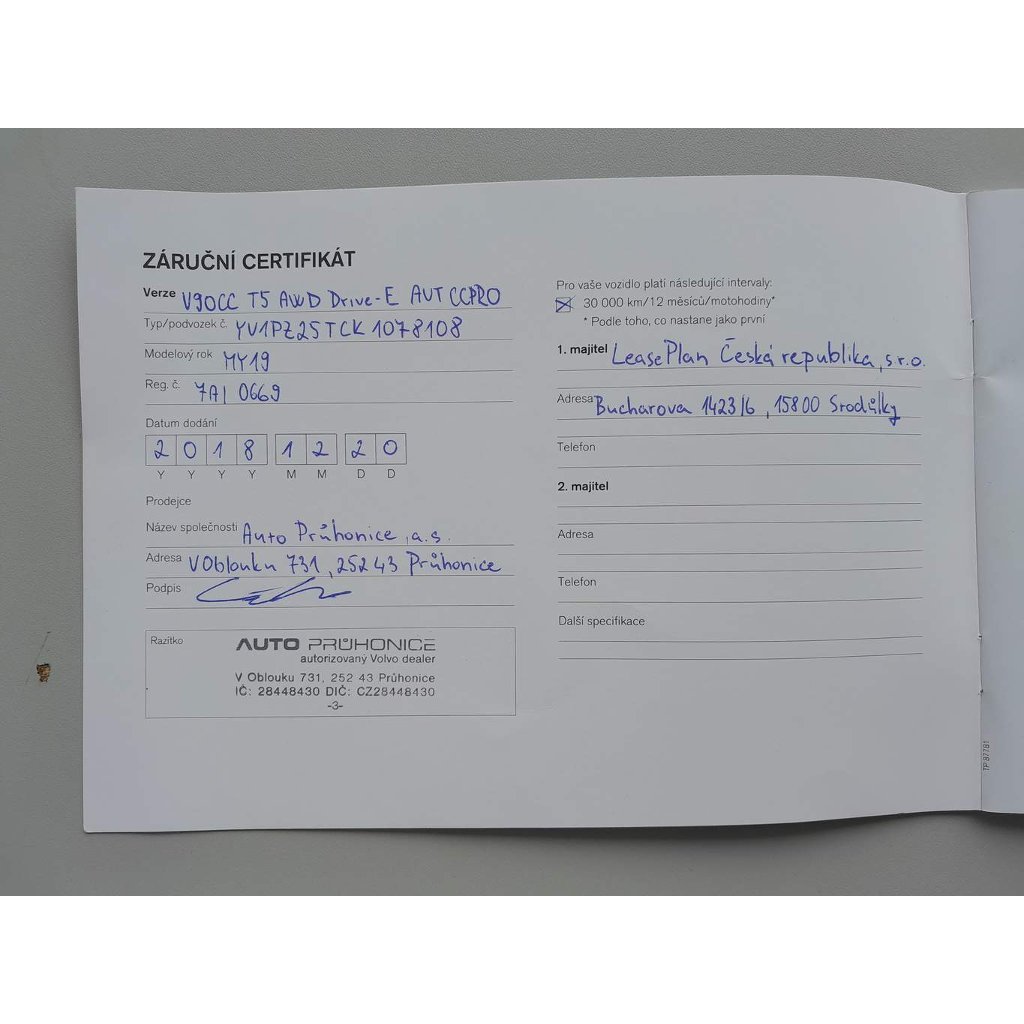 ZÁRUČNÍ CERTIFIKÁT
Verze V90CC T5 AWD Drive-E AUT CCPRO
Typ/podvozek č. YV1PZ25TCK1078108
Modelový rok MY19
Reg. č. 7AI 0669
Datum dodání
2018 12 20
Y Y Y Y M M D D
Prodejce
Název společnosti Auto Průhonice, a.s.
Adresa V Oblouku 731, 252 43 Průhonice
Podpis
Razítko
AUTO PRŮHONICE
autorizovaný Volvo dealer
V Oblouku 731, 252 43 Průhonice
IČ: 28448430 DIČ: CZ28448430
-3-
Pro vaše vozidlo platí následující intervaly:
30 000 km/12 měsíců/motohodiny*
* Podle toho, co nastane jako první
1. majitel LeasePlan Česká republika, s.r.o.
Adresa Bucharova 1423/6, 15800 Srodůlky
Telefon
2. majitel
Adresa
Telefon
Další specifikace
TP 87781